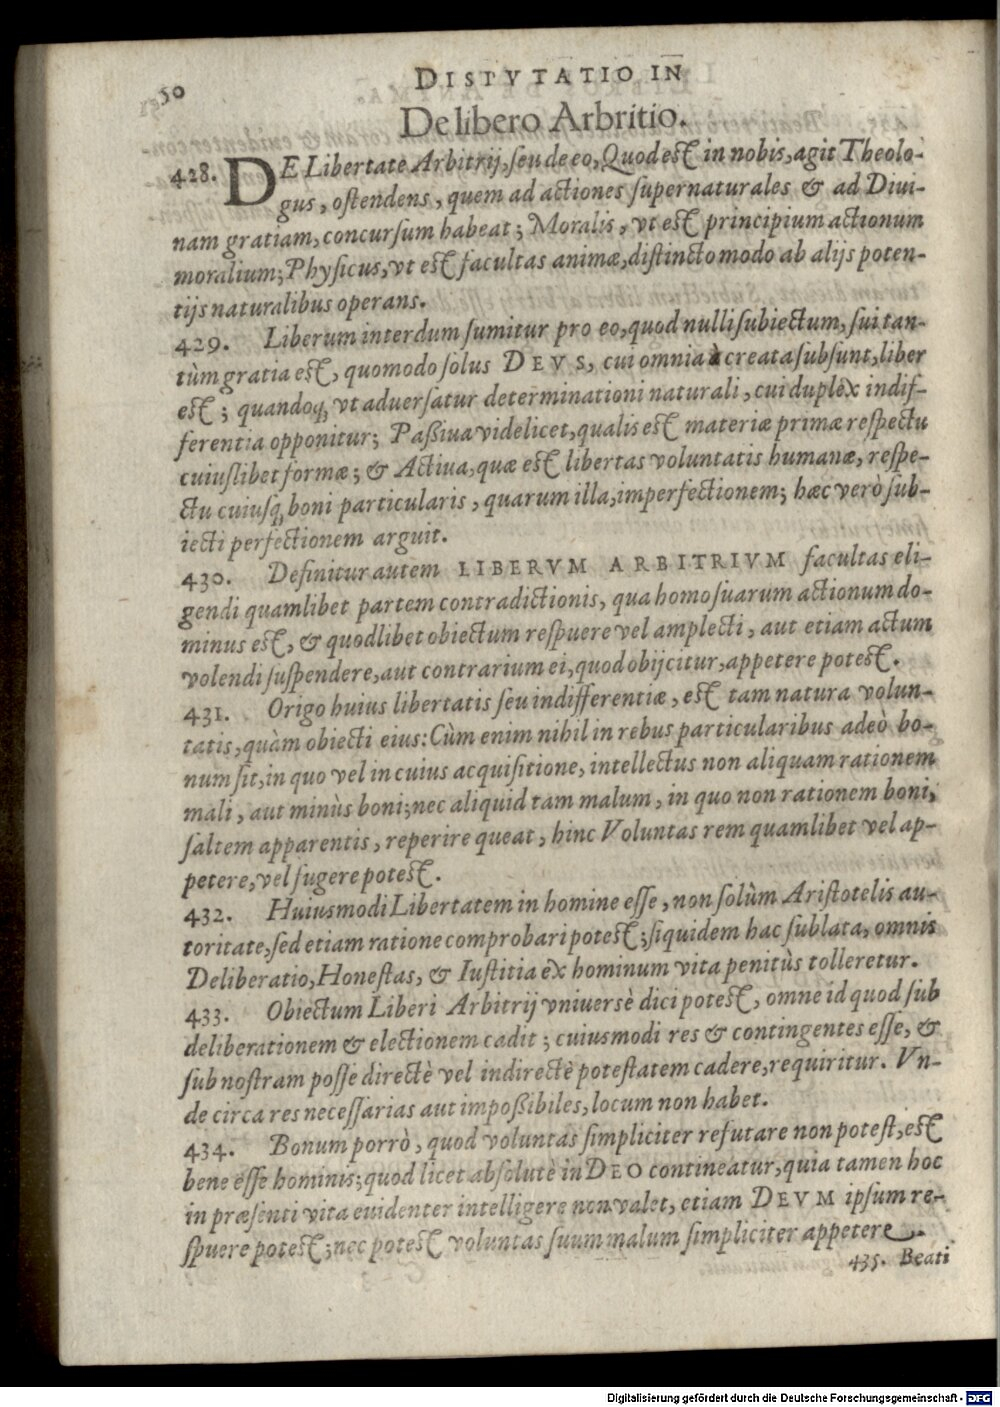 50
DISTVTATIO IN
De libero Arbritio.
428. DE Libertate Arbitrij, seu de eo, Quod est in nobis, agit Theolo-
gus, ostendens, quem ad actiones supernaturales & ad Diui-
nam gratiam, concursum habeat; Moralis, vt est principium actionum
moralium; Physicus, vt est facultas animæ, distincto modo ab alijs poten-
tijs naturalibus operans.
429. Liberum interdum sumitur pro eo, quod nulli subiectum, sui tan-
tùm gratia est, quomodo solus DEVS, cui omnia à creata subsunt, liber
est; quandoq; vt aduersatur determinationi naturali, cui duplex indif-
ferentia opponitur; Paßiua videlicet, qualis est materiæ primæ respectu
cuiuslibet formæ; & Actiua, quæ est libertas voluntatis humanæ, respe-
ctu cuiusq; boni particularis, quarum illa, imperfectionem; hæc verò sub-
iecti perfectionem arguit.
430. Definitur autem LIBERVM ARBITRIVM facultas eli-
gendi quamlibet partem contradictionis, qua homo suarum actionum do-
minus est, & quodlibet obiectum respuere vel amplecti, aut etiam actum
volendi suspendere, aut contrarium ei, quod obijcitur, appetere potest.
431. Origo huius libertatis seu indifferentiæ, est tam natura volun-
tatis, quàm obiecti eius: Cùm enim nihil in rebus particularibus adeò bo-
num sit, in quo vel in cuius acquisitione, intellectus non aliquam rationem
mali, aut minùs boni; nec aliquid tam malum, in quo non rationem boni,
saltem apparentis, reperire queat, hinc Voluntas rem quamlibet vel ap-
petere, vel fugere potest.
432. Huiusmodi Libertatem in homine esse, non solùm Aristotelis au-
toritate, sed etiam ratione comprobari potest; siquidem hac sublata, omnis
Deliberatio, Honestas, & Iustitia ex hominum vita penitùs tolleretur.
433. Obiectum Liberi Arbitrij vniuersè dici potest, omne id quod sub
deliberationem & electionem cadit; cuiusmodi res & contingentes esse, &
sub nostram posse directè vel indirectè potestatem cadere, requiritur. Vn-
de circa res necessarias aut impoßibiles, locum non habet.
434. Bonum porrò, quod voluntas simpliciter refutare non potest, est
bene esse hominis; quod licet absolutè in DEO contineatur, quia tamen hoc
in præsenti vita euidenter intelligere non valet, etiam DEVM ipsum re-
spuere potest; nec potest voluntas suum malum simpliciter appetere.
435. Beati
Digitalisierung gefördert durch die Deutsche Forschungsgemeinschaft - DFG